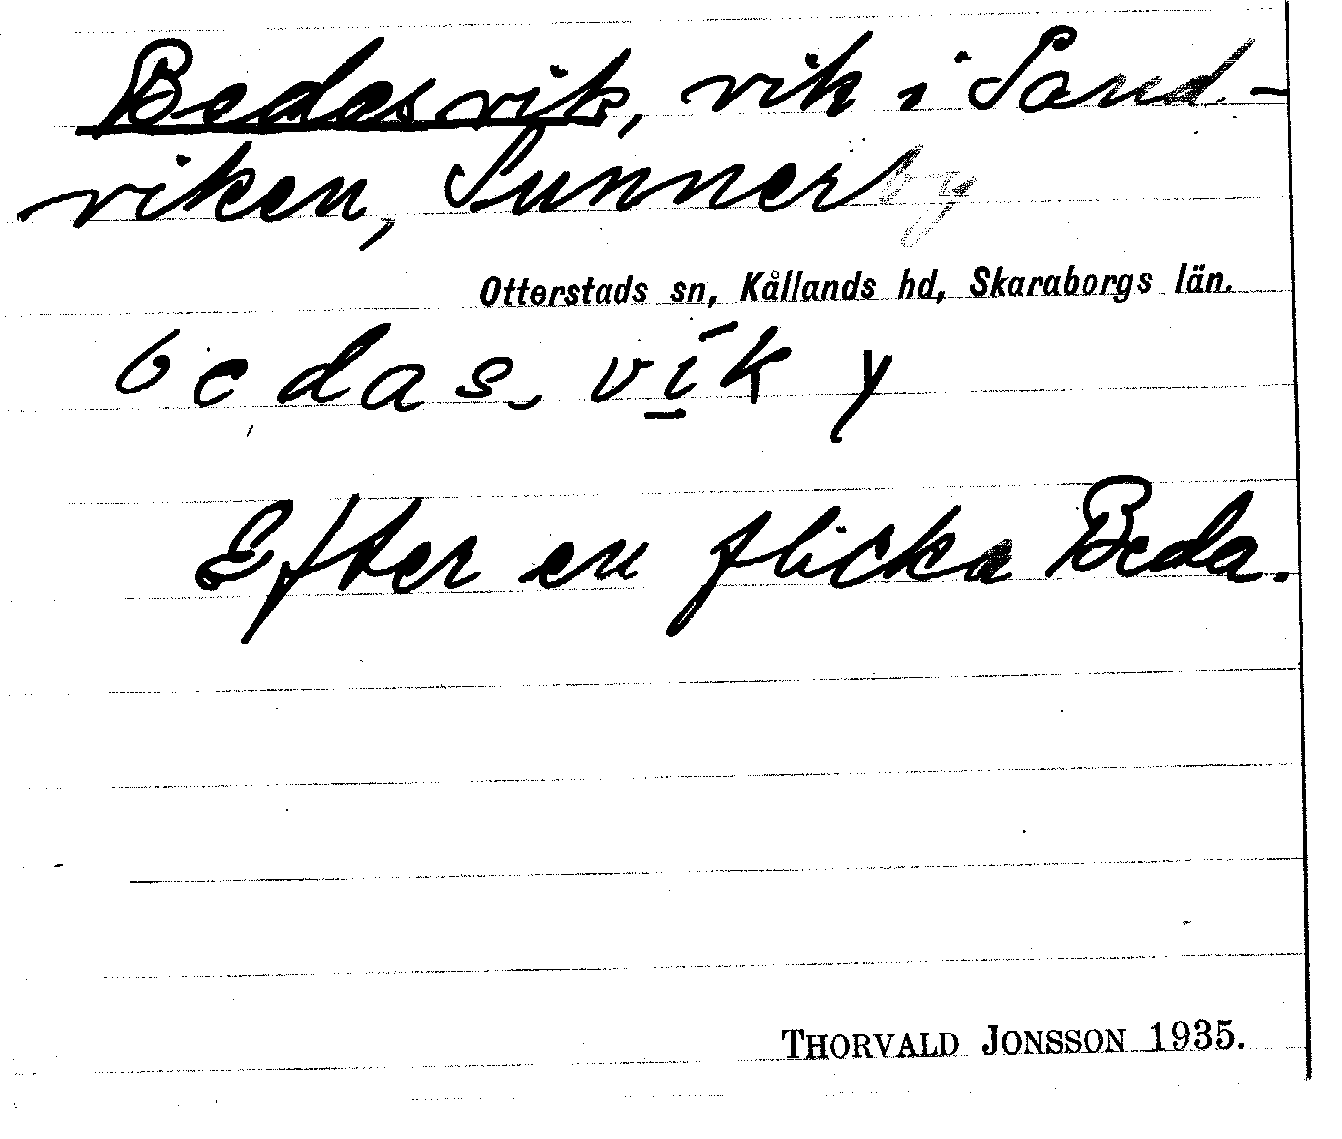 Bedasvik, vik i Sand-
viken, Sunnerby
Otterstads sn, Kållands hd, Skaraborgs län.
bedas vik y
Efter en flicka Beda.
THORVALD JONSSON 1935.